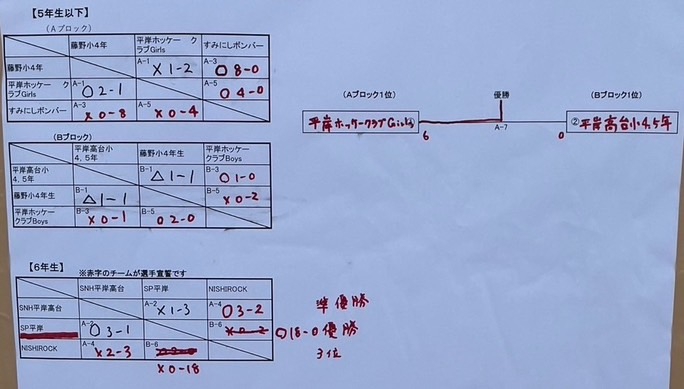 【5年生以下】
(Aブロック)
藤野小4年 平岸ホッケー ク すみにしボンバー
ラブGirls
藤野小4年 A-1 × 1-2 A-3 ○ 8-0
平岸ホッケー ク A-1 ○ 2-1 A-5 ○ 4-0
ラブGirls
すみにしボンバー A-3 × 0-8 A-5 × 0-4
(Aブロック1位) 優勝 (Bブロック1位)
平岸ホッケークラブGirls 6 A-7 0 ②平岸高台小4,5年
(Bブロック)
平岸高台小 藤野小4年生 平岸ホッケー
4, 5年 クラブBoys
平岸高台小 B-1 △ 1-1 B-3 ○ 1-0
4, 5年
藤野小4年生 B-1 △ 1-1 B-5 × 0-2
平岸ホッケー B-3 × 0-1 B-5 ○ 2-0
クラブBoys
【6年生】 ※赤字のチームが選手宣誓です
SNH平岸高台 SP平岸 NISHIROCK
SNH平岸高台 A-2 × 1-3 A-4 ○ 3-2 準優勝
SP平岸 A-2 ○ 3-1 B-6 × 0-2 ○ 18-0 優勝
NISHIROCK A-4 × 2-3 B-6 3位
× 0-18